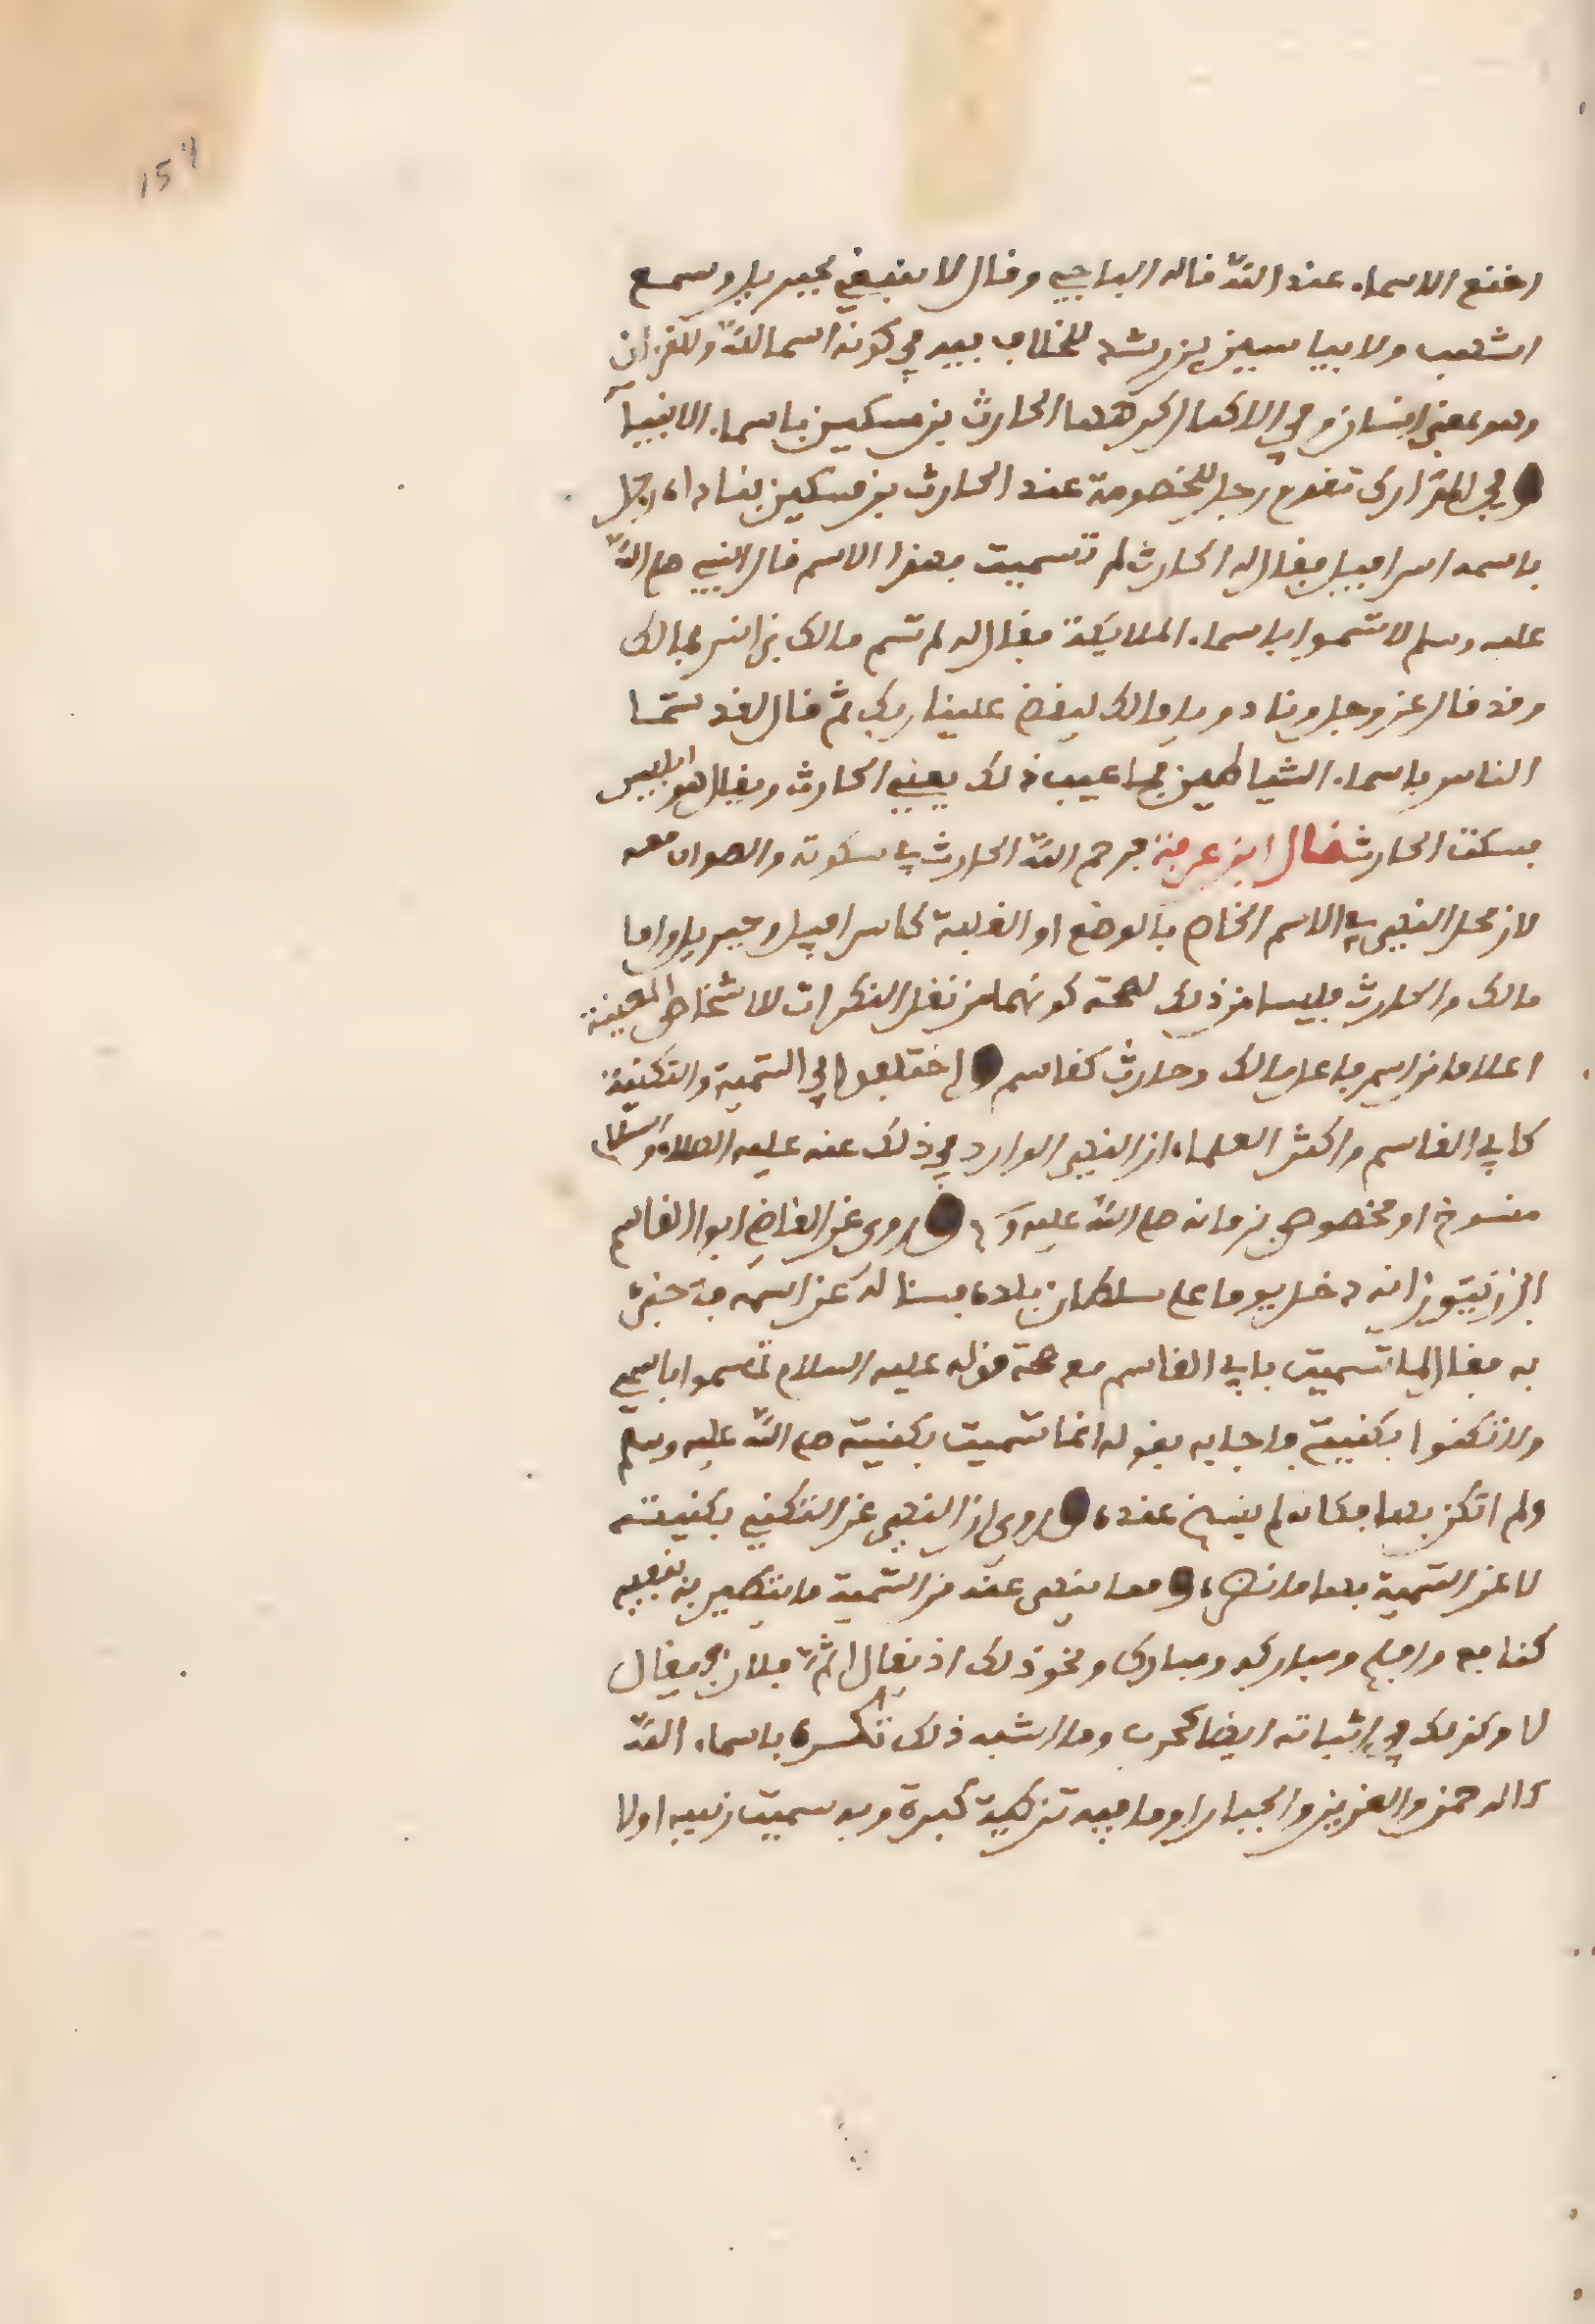 154
اخنع الاسماء عند الله قاله الباجي وقال لا ينبغي بجبريل وسمع
اشهب ولا بياسين بن رشد للخلاف فيه في كونه اسما لله وللقرءان
وهو بمعنى انسان وفي الاكمال كره بها الحارث بن مسكين باسماء الانبياء
وفي المدارك تقدم رجل للخصومة عند الحارث بن مسكين فناداه رجل
باسمه اسرافيل فقال له الحارث لم تسميت بهذا الاسم قال النبي صلى الله
عليه وسلم لا تسموا باسماء الملايكة فقال له لم تسم مالك بن انس بمالك
وقد قال عز وجل ونادوا يا مالك ليقض علينا ربك ثم قال لقد تسما
الناس باسماء الشياطين فما عيب ذلك يعني الحارث ويقال هو ابليس
فسكت الحارث قال ابن عرفة فرحم الله الحارث في سكوته والصواب معه
لان محل النهي في الاسم الخاص بالوضع او الغلبة كاسرافيل وجبريل واما
مالك والحارث فليسا من ذلك لصحة كونهما من نقل النكرات للاشخاص المعينة
اعلاما من اسم فاعل مالك وحارث كقاسم واختلفوا في التسمية والتكنية
كابي القاسم واكثر العلماء ان النهي الوارد في ذلك عنه عليه الصلاة والسلام
منسوخ او مخصوص بزمانه صلى الله عليه و وروى عن القاضي ابوا القاسم
ابن زيتون انه دخل يوما على سلطان بلده فساله عن اسمه
به فقال لما تسميت بابي القاسم مع صحة قوله عليه السلام تسموا باسمي
ولا تكنوا بكنيتي فاجابه بقوله انما تسميت بكنيته صلى الله عليه وسلم
ولم اتكن بها فكانه لم ينسخ عنده وروي ان النهي عن التكني بكنيته
لا عن التسمية بها فانظره ومما ينهى عنه من التسمية ما يتطير بنفيه
كنافع وافلح ومبارك ونحو ذلك اذ يقال اثم فلان فيقال
لا وكذلك في اثباته ايضا كحرب وما اشبه ذلك تكره باسماء الله
كالرحمن والعزيز والجبار او ما فيه تزكية كبرة وبه سميت زينب اولا